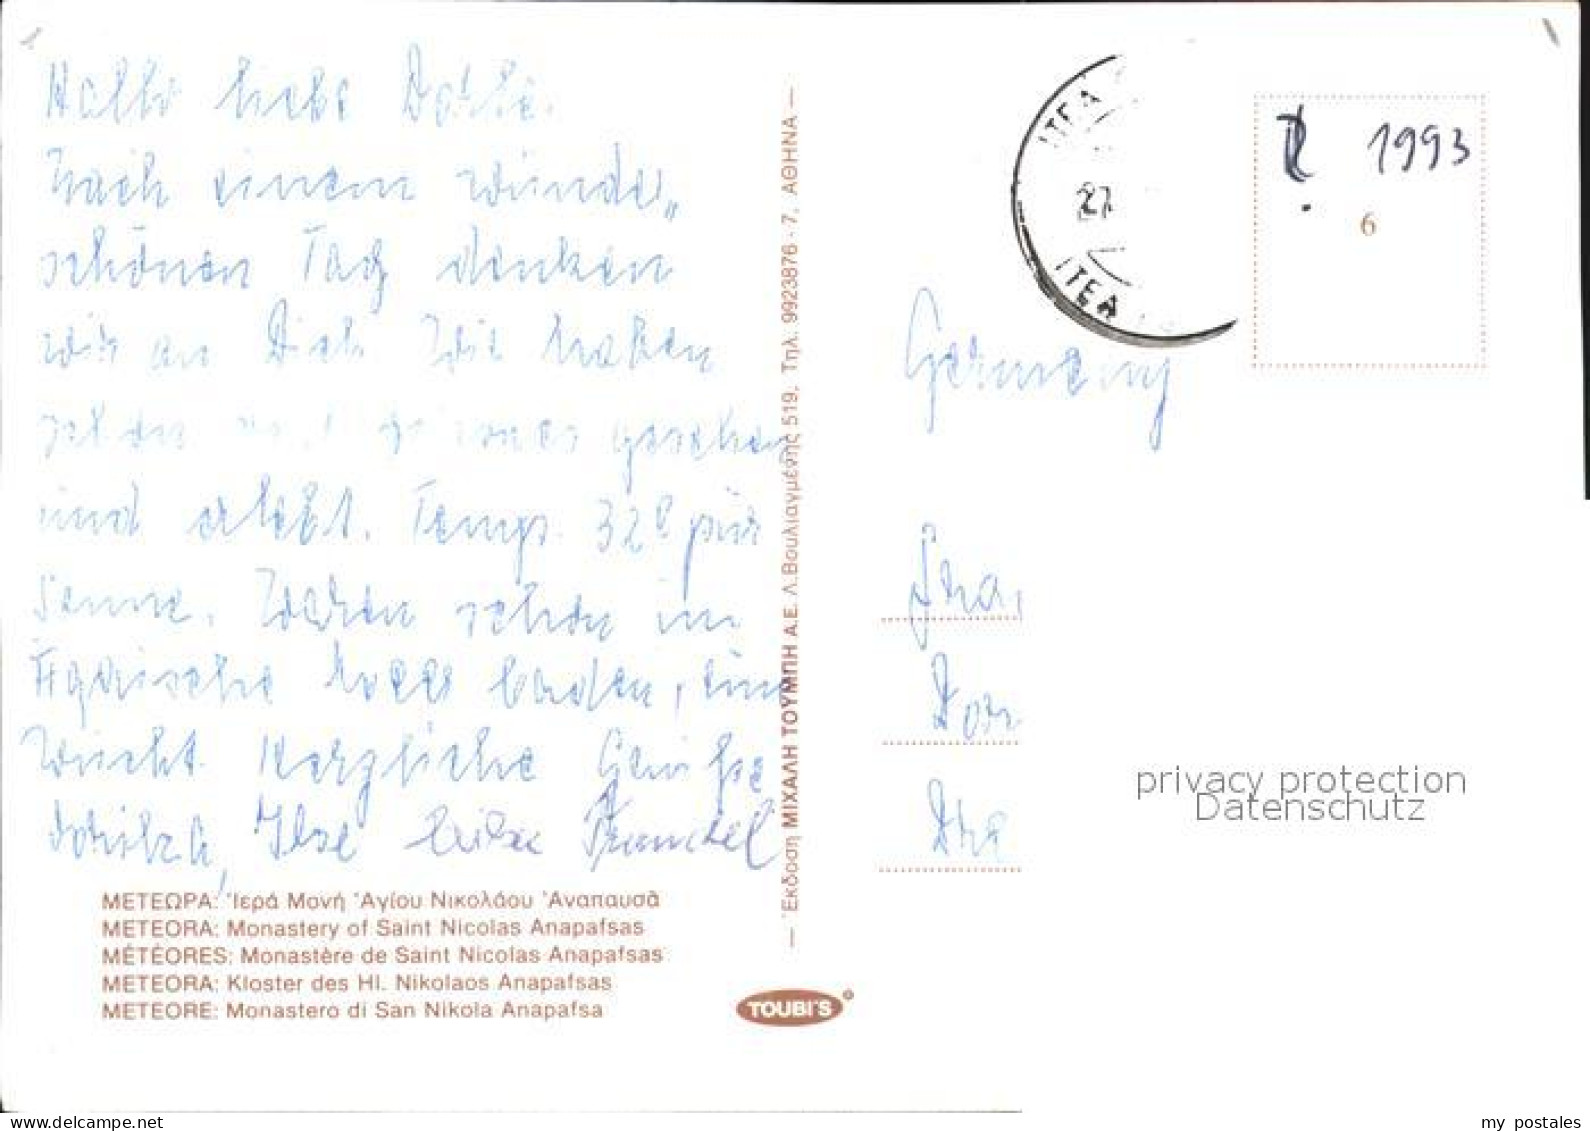 Hallo liebe
Nach einem wunder„
schönen Tag denken
wir an Dich Wir haben
schon gesehen
und erlebt. Temp. 32° pür
Sonne. Waren schon im
Ägäische Meer baden, ein
Wucht. Herzliche Grüße
Ilse
ΜΕΤΕΩΡΑ: Ἱερά Μονή Ἁγίου Νικολάου Ἀναπαυσᾶ
METEORA: Monastery of Saint Nicolas Anapafsas
MÉTÉORES: Monastère de Saint Nicolas Anapafsas
METEORA: Kloster des Hl. Nikolaos Anapafsas
METEORE: Monastero di San Nikola Anapafsa
— Ἔκδοση ΜΙΧΑΛΗ ΤΟΥΜΠΗ Α.Ε. Λ.Βουλιαγμένης 519, Τηλ. 9923876 - 7, ΑΘΗΝΑ —
TOUBI'S
ITEA
27
ITEA
1993
6
Germany
Dor
privacy protection
Datenschutz
my postales